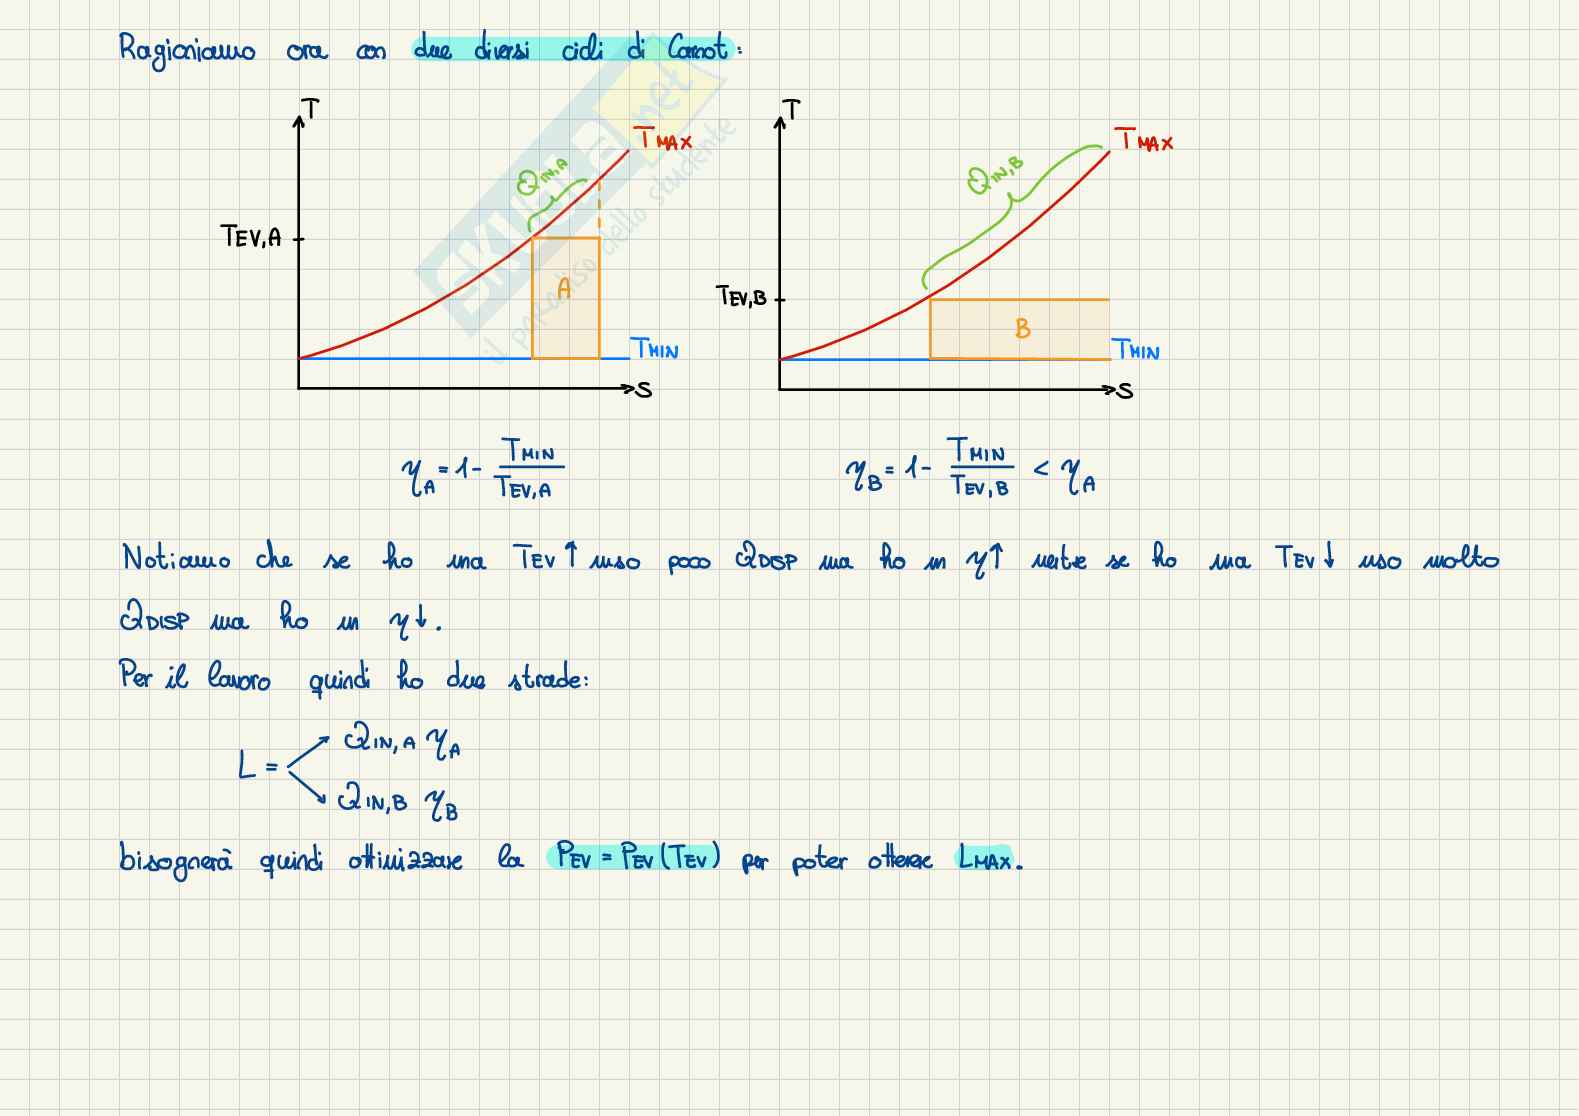 Ragioniamo ora con due diversi cicli di Carnot:
T
TMAX
QIN,A
TEV,A
A
TMIN
S
T
TMAX
QIN,B
TEV,B
B
TMIN
S
SKUOLA.net
il paradiso dello studente
ηA = 1 - TMIN / TEV,A
ηB = 1 - TMIN / TEV,B < ηA
Notiamo che se ho una TEV ↑ uso poco QDISP ma ho un η↑ mentre se ho una TEV ↓ uso molto
QDISP ma ho un η↓.
Per il lavoro quindi ho due strade:
L =
QIN,A ηA
QIN,B ηB
bisognerà quindi ottimizzare la PEV = PEV (TEV) per poter ottenere LMAX.